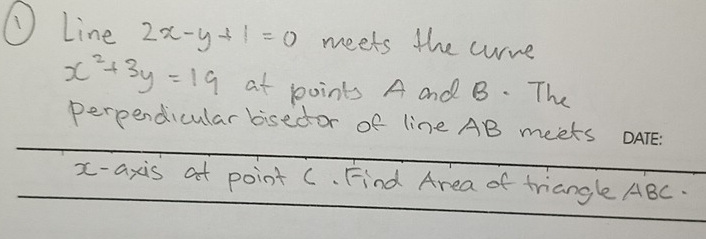 ① Line 2x-y+1=0 meets the curve
x²+3y=19 at points A and B. The
perpendicular bisector of line AB meets DATE:
x-axis at point C. Find Area of triangle ABC.